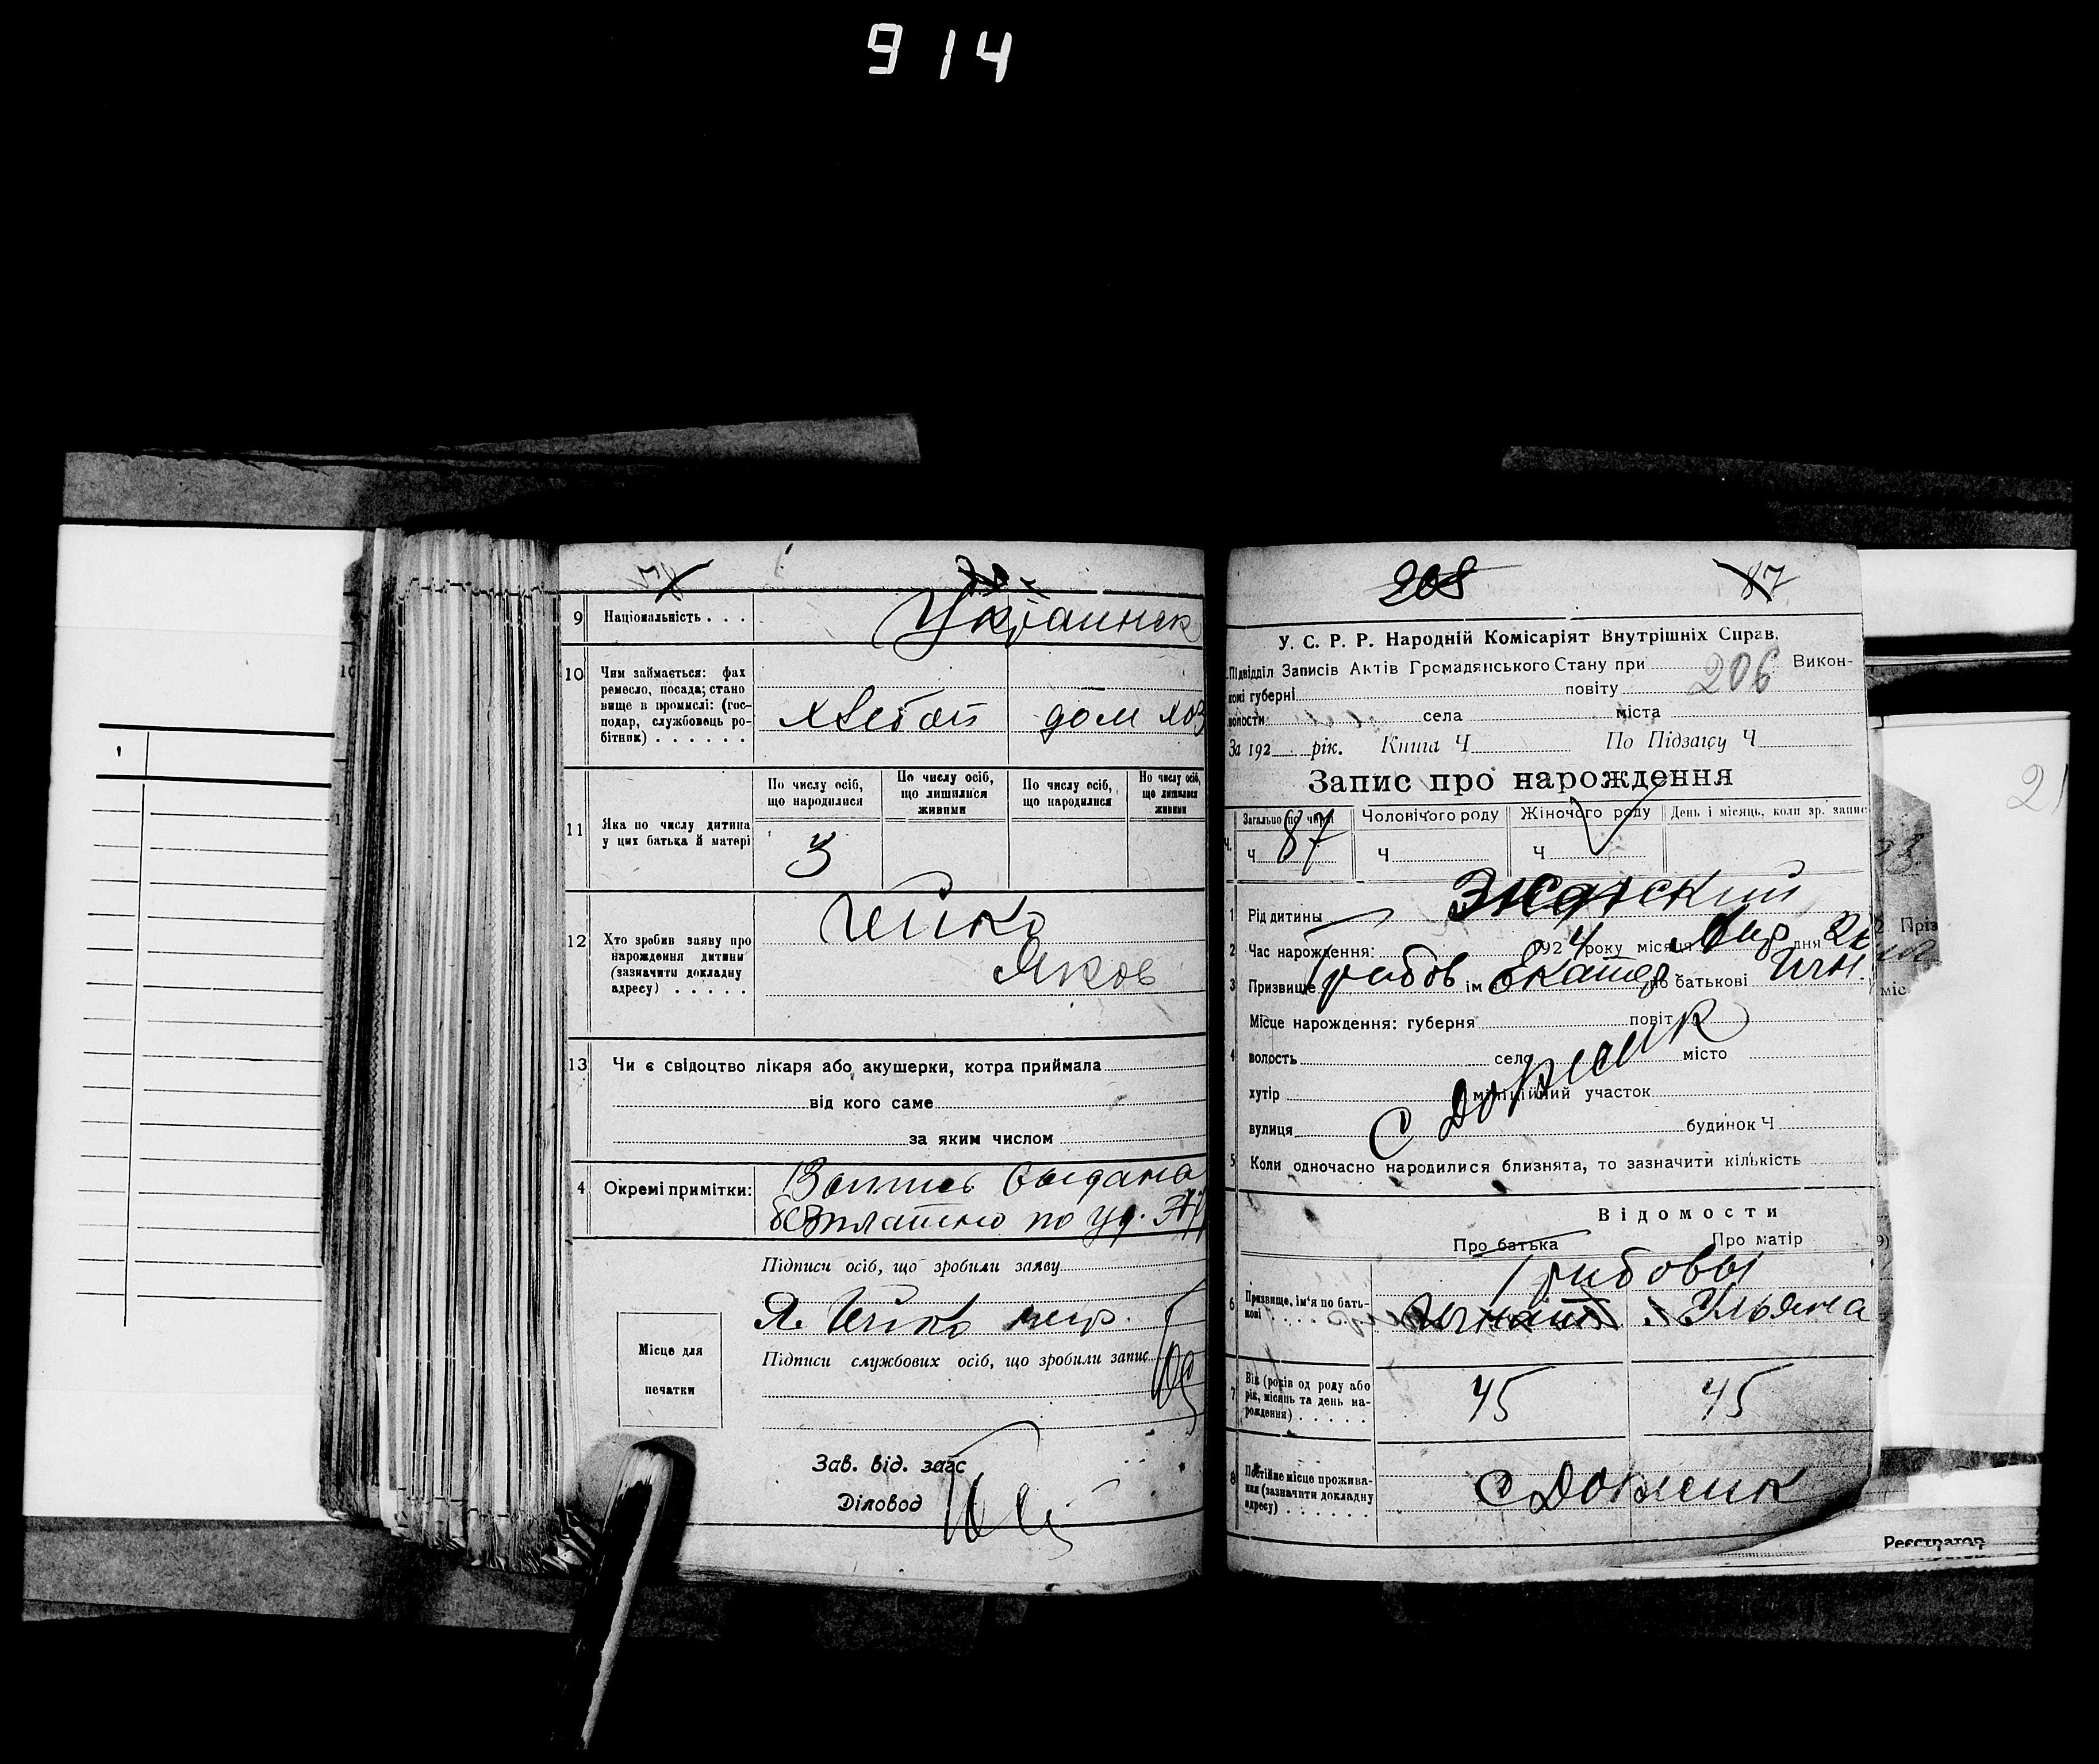 914
9 Національність . . .
Украинск
10 Чим займається: фах
ремесло, посада; стано
вище в промислі: (гос-
подар, службовець ро-
бітник) . . . . . .
хлебоп
дом хоз
По числу осіб,
що народилися
По числу осіб,
що лишилися
живими
По числу осіб,
що народилися
По числу осіб,
що лишилися
живими
11 Яка по числу дитина
у цих батька й матері
3
12 Хто зробив заяву про
нарождення дитини
(зазначити докладну
адресу) . . . . .
Яков
13 Чи є свідоцтво лікаря або акушерки, котра приймала
від кого саме
за яким числом
4 Окремі примітки:
Выдана
безплатно по уд.
Підписи осіб, що зробили заяву
Я.
Підписи службових осіб, що зробили запис
Місце для
печатки
Зав. від. загс
Діловод
208
87
У. С. Р. Р. Народній Комісаріят Внутрішніх Справ.
Підвідділ Записів Актів Громадянського Стану при 206 Викон-
комі губерні повіту
волости села міста
За 192 рік. Книга Ч По Підзагсу Ч
Запис про нарождення
Загально по черзі
Ч 87
Чоловічого роду
Ч
Жіночого роду
Ч
День і місяць, коли зр. запис
1 Рід дитини Женский
2 Час нарождення: 1924 року місяця дня
3 Призвище Грибов ім Екатер по батькові Игн.
Місце нарождення: губерня повіт
4 волость село місто
хутір міліційний участок
вулиця будинок Ч
5 Коли одночасно народилися близнята, то зазначити кількість
Відомости
Про батька
Про матір
Грибовы
6 Призвище, ім'я по бать-
кові
Игнат
Ульяна
7 Вік (років од роду або
рік, місяць та день на-
рождення) . . . . .
45
45
8 Постійне місце прожива-
ння (зазначити докладну
адресу) . . . . . .
Реєстратор